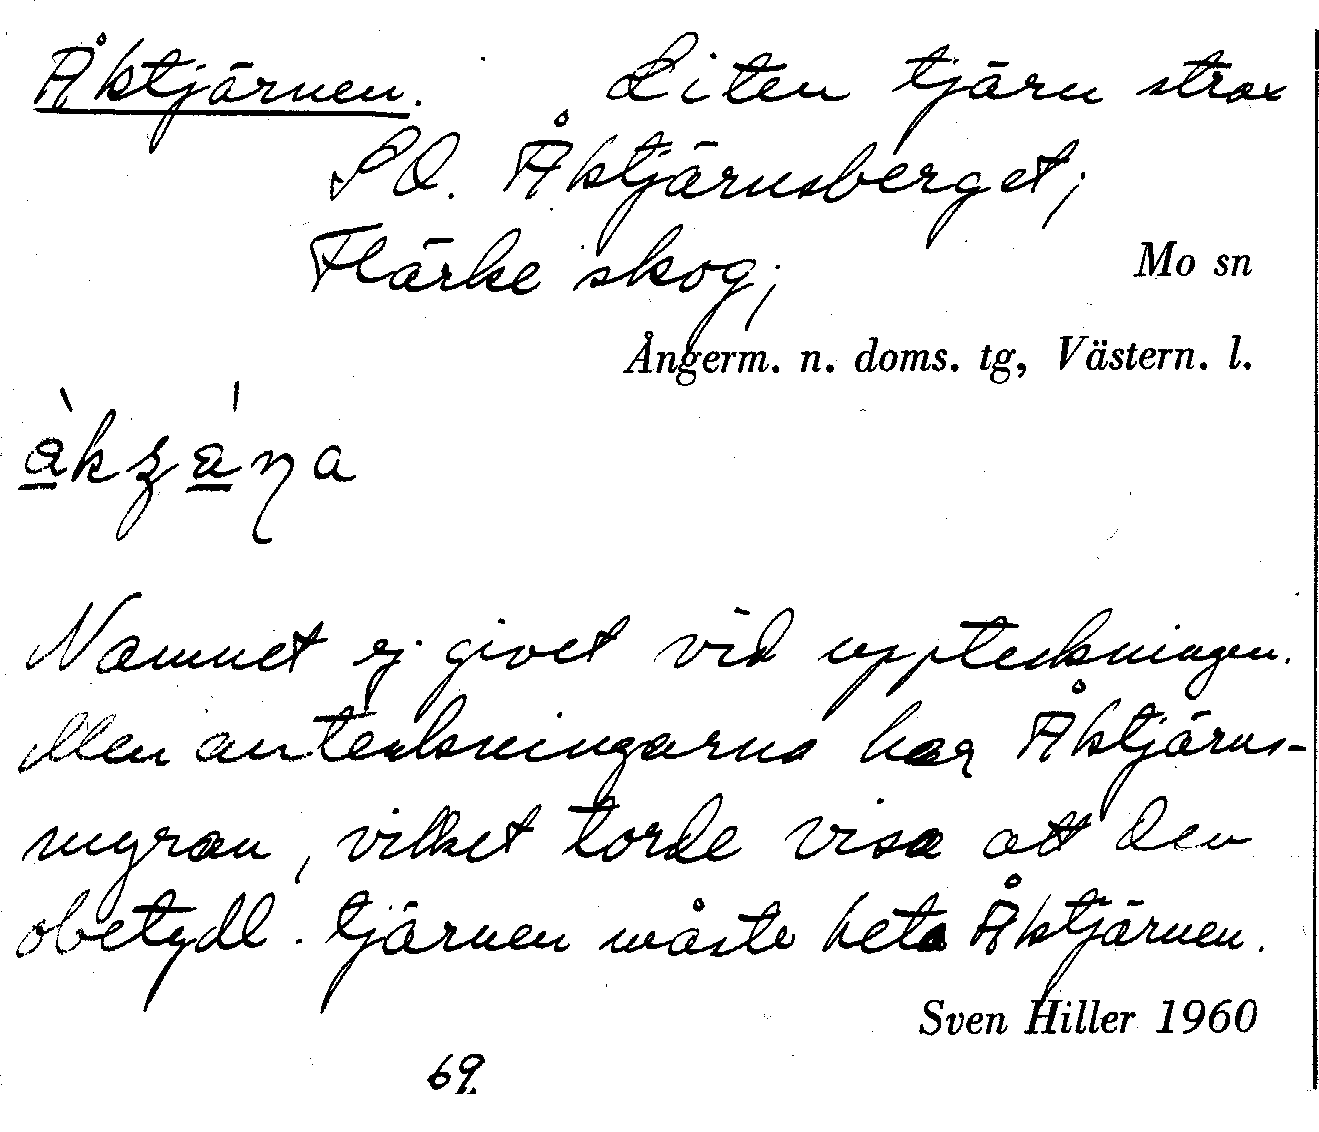 Åktjärnen. Liten tjärn strax
SO. Åktjärnsberget;
Flärke skog; Mo sn
Ångerm. n. doms. tg, Västern. l.
Namnet ej givet vid uppteckningen.
Men anteckningarna har Åktjärns-
myran, vilket torde visa att den
obetydl. tjärnen måste heta Åktjärnen.
Sven Hiller 1960
69.